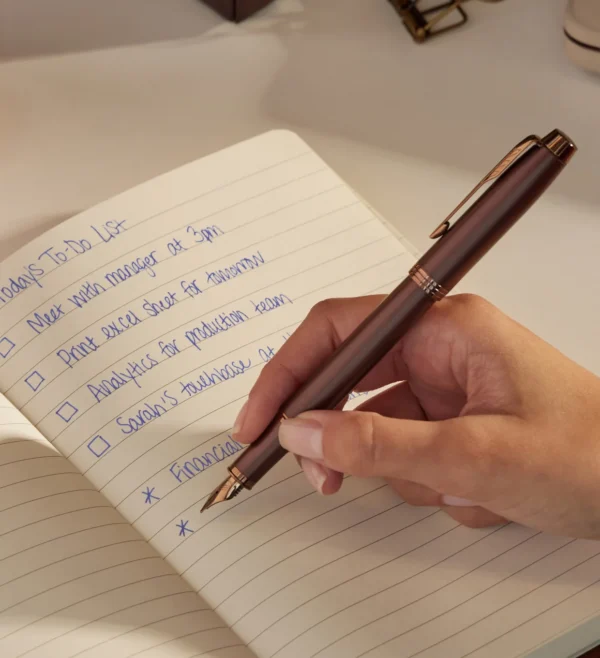 Today's To-Do List
Meet with manager at 3pm
Print excel sheet for tomorrow
Analytics for production team
Sarah's touchbase at
* Financial
*